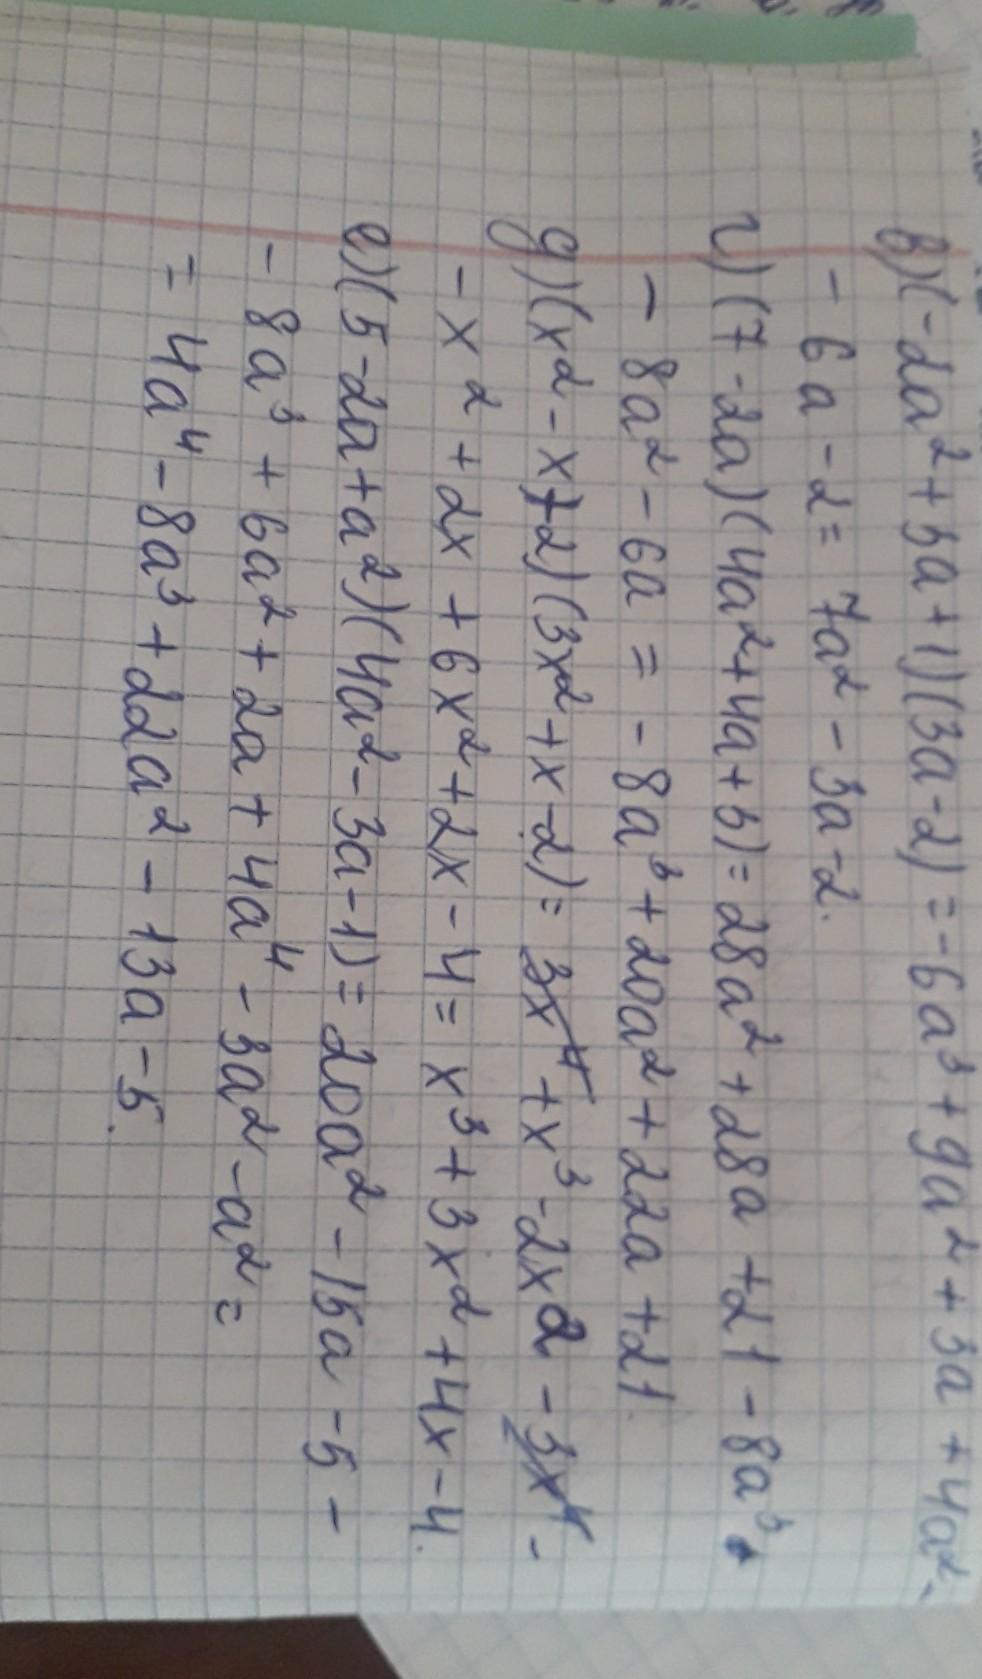 в)(-2a²+3a+1)(3a-2)=-6a³+9a²+3a+4a²-
-6a-2=7a²-3a-2.
г)(7-2a)(4a²+4a+3)=28a²+28a+21-8a³-
-8a²-6a=-8a³+20a²+22a+21.
д)(x²-x+2)(3x²+x-2)=3x⁴+x³-2x²-3x⁴-
-x²+2x+6x²+2x-4=x³+3x²+4x-4.
е)(5-2a+a²)(4a²-3a-1)=20a²-15a-5-
-8a³+6a²+2a+4a⁴-3a²-a²=
=4a⁴-8a³+22a²-13a-5.